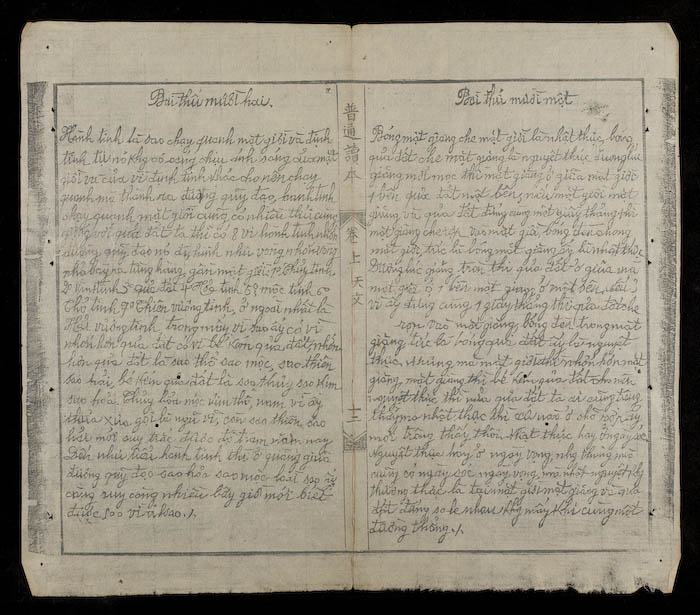 Bài thứ mười một
Bóng mặt giăng che mặt giời là nhật thực, bóng
quả đất che mặt giăng là nguyệt thực. Đương lúc
giăng mới mọc thì mặt giăng ở giữa mặt giời
1 bên quả đất một bên, nếu mặt giời mặt
giăng và quả đất đứng cùng một giây thẳng thì
mặt giăng che vào mặt giời bóng đen trong
mặt giời, tức là bóng mặt giăng ấy là nhật thực
Đương lúc giăng tròn thì quả đất ở giữa mà
mặt giời ở 1 bên mặt giăng ở một bên, nếu 3
vì ấy đứng cùng 1 giây thẳng thì quả đất che
vào mặt giăng, bóng đen trong mặt
giăng tức là bóng quả đất ấy là nguyệt
thực, nhưng mà mặt giời thì nhớn hơn mặt
giăng, mặt giăng thì bé hơn quả đất cho nên
nguyệt thực thì nửa quả đất ta ai cũng trông
thấy mà nhật thực thì chỉ ở chỗ bên ấy
mới trông thấy thôi. Nhật thực hay ở ngày sóc
Nguyệt thực hay ở ngày vọng, nhưng
cũng có ngày sóc ngày vọng mà nhật nguyệt không
thường thực là tại mặt giời mặt giăng và quả
đất đứng so le nhau không mấy khi cùng một
đường thẳng ./.
普通讀本
卷上 天文
十三
Bài thứ mười hai.
Hành tinh là sao chạy quanh mặt giời và định
tinh tự nó không có sáng chịu ánh sáng của mặt
giời và của vì định tinh khác cho nên chạy
quanh mà thành ra đường quỹ đạo, hành tinh
chạy quanh mặt giời cũng có nhiều thứ cùng
với quả đất ta thì có 8 vì hành tinh nhớn
đường quỹ đạo nó đi hình như vòng nhớn vòng
nhỏ bày ra từng hàng, gần mặt giời 1º Thủy tinh
2º Kim tinh 3º Quả đất 4º Hỏa tinh 5º mộc tinh 6º
Thổ tinh 7º Thiên vương tinh, ở ngoài nhất là
Hải vương tinh trong mấy vì sao ấy có vì
nhớn hơn quả đất có vì bé hơn quả đất, nhớn
hơn quả đất là sao thổ sao mộc, sao thiên
sao hải, bé kém quả đất là sao thủy sao kim
sao hỏa. Thủy hỏa mộc kim thổ, năm vì ấy
thuở xưa gọi là ngũ vĩ, còn sao thiên, sao
hải mới suy trắc được độ trăm năm nay
Đến như tiểu hành tinh thì ở quãng giữa
đường quỹ đạo sao hỏa sao mộc, loài sao ấy
càng suy càng nhiều bây giờ mới biết
được 500 vì vì sao ./.